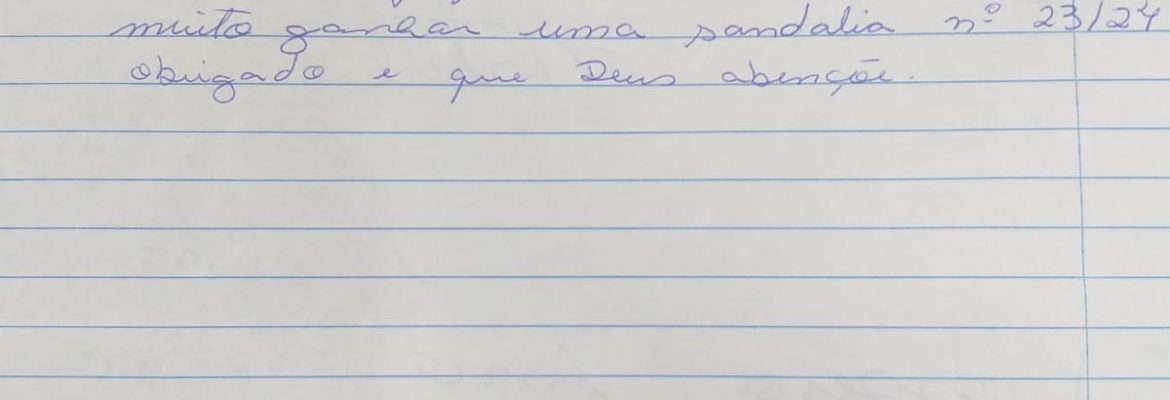 muito ganhar uma sandalia nº 23/24
obrigado e que Deus abençõe.